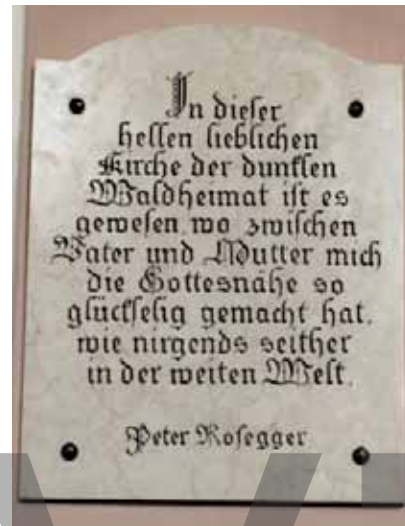 In dieser
hellen lieblichen
Kirche der dunklen
Waldheimat ist es
gewesen, wo zwischen
Vater und Mutter mich
die Gottesnähe so
glückselig gemacht hat,
wie nirgends seither
in der weiten Welt.
Peter Rosegger